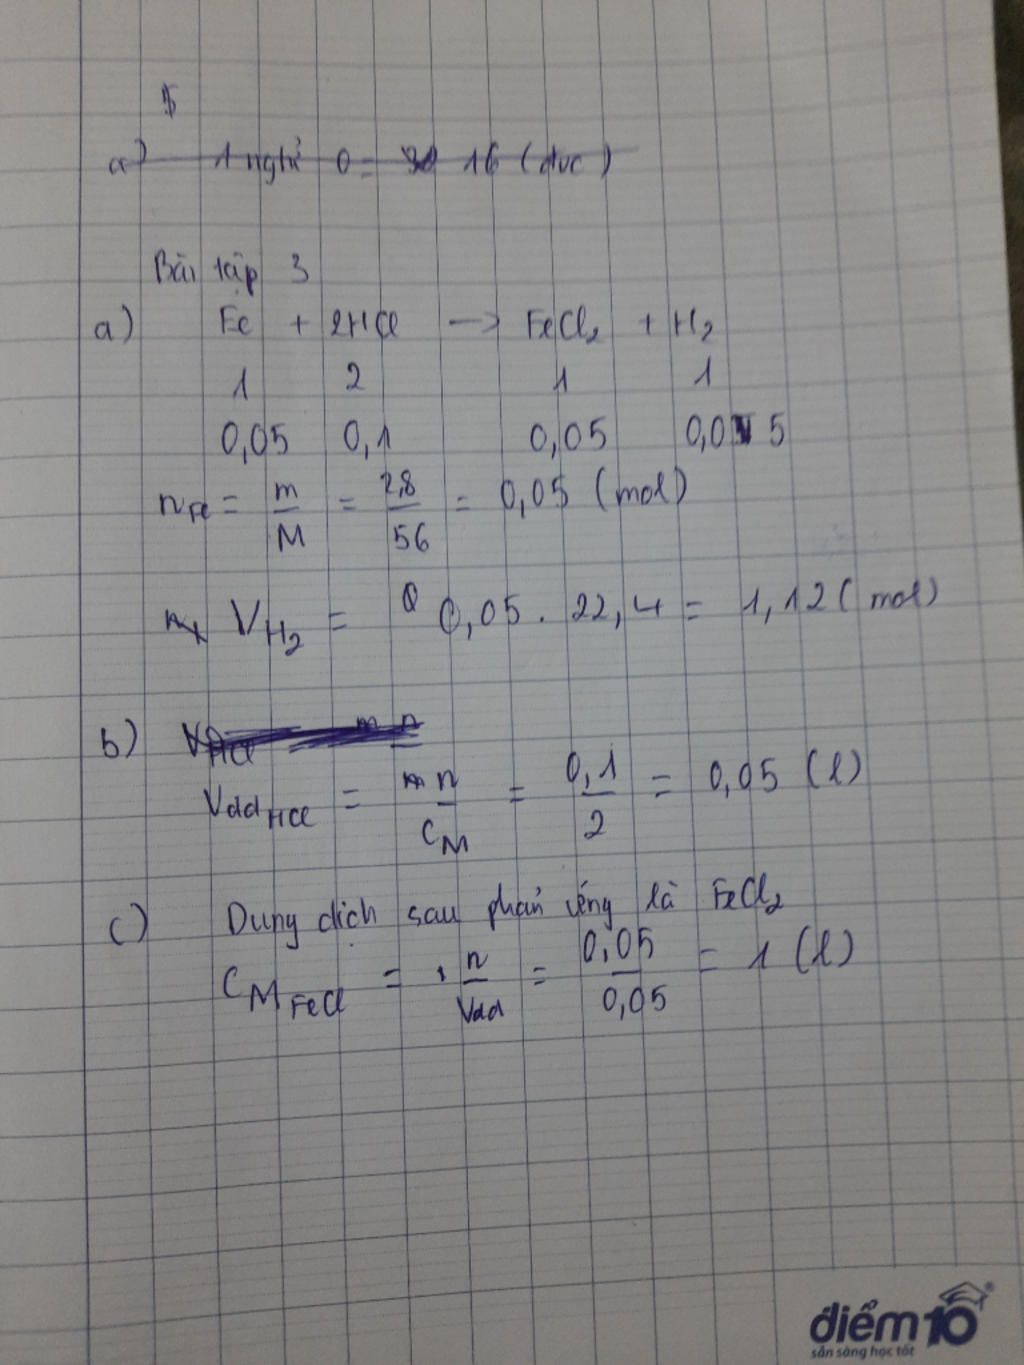 a) 1 ngtử O = 16 (đvc)
Bài tập 3
a) Fe + 2HCl -> FeCl2 + H2
1 2 1 1
0,05 0,1 0,05 0,05
nFe = m/M = 2,8/56 = 0,05 (mol)
VH2 = 0,05 . 22,4 = 1,12 (mol)
b) VHCl m n
VddHCl = n/CM = 0,1/2 = 0,05 (l)
c) Dung dịch sau phản ứng là FeCl2
CMFeCl = n/Vdd = 0,05/0,05 = 1 (l)
điểm10
sẵn sàng học tốt